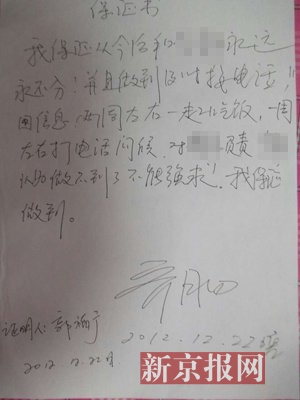 保证书
我保证从今后和 永远
永不分！并且做到及时接电话！
回信息，两周左右一起吃饭，一周
左右打电话问候，对 负责
认为做不到了不能强求！我保证
做到。
证明人：郭
2012.12.22
2012 12.22日
新京报网